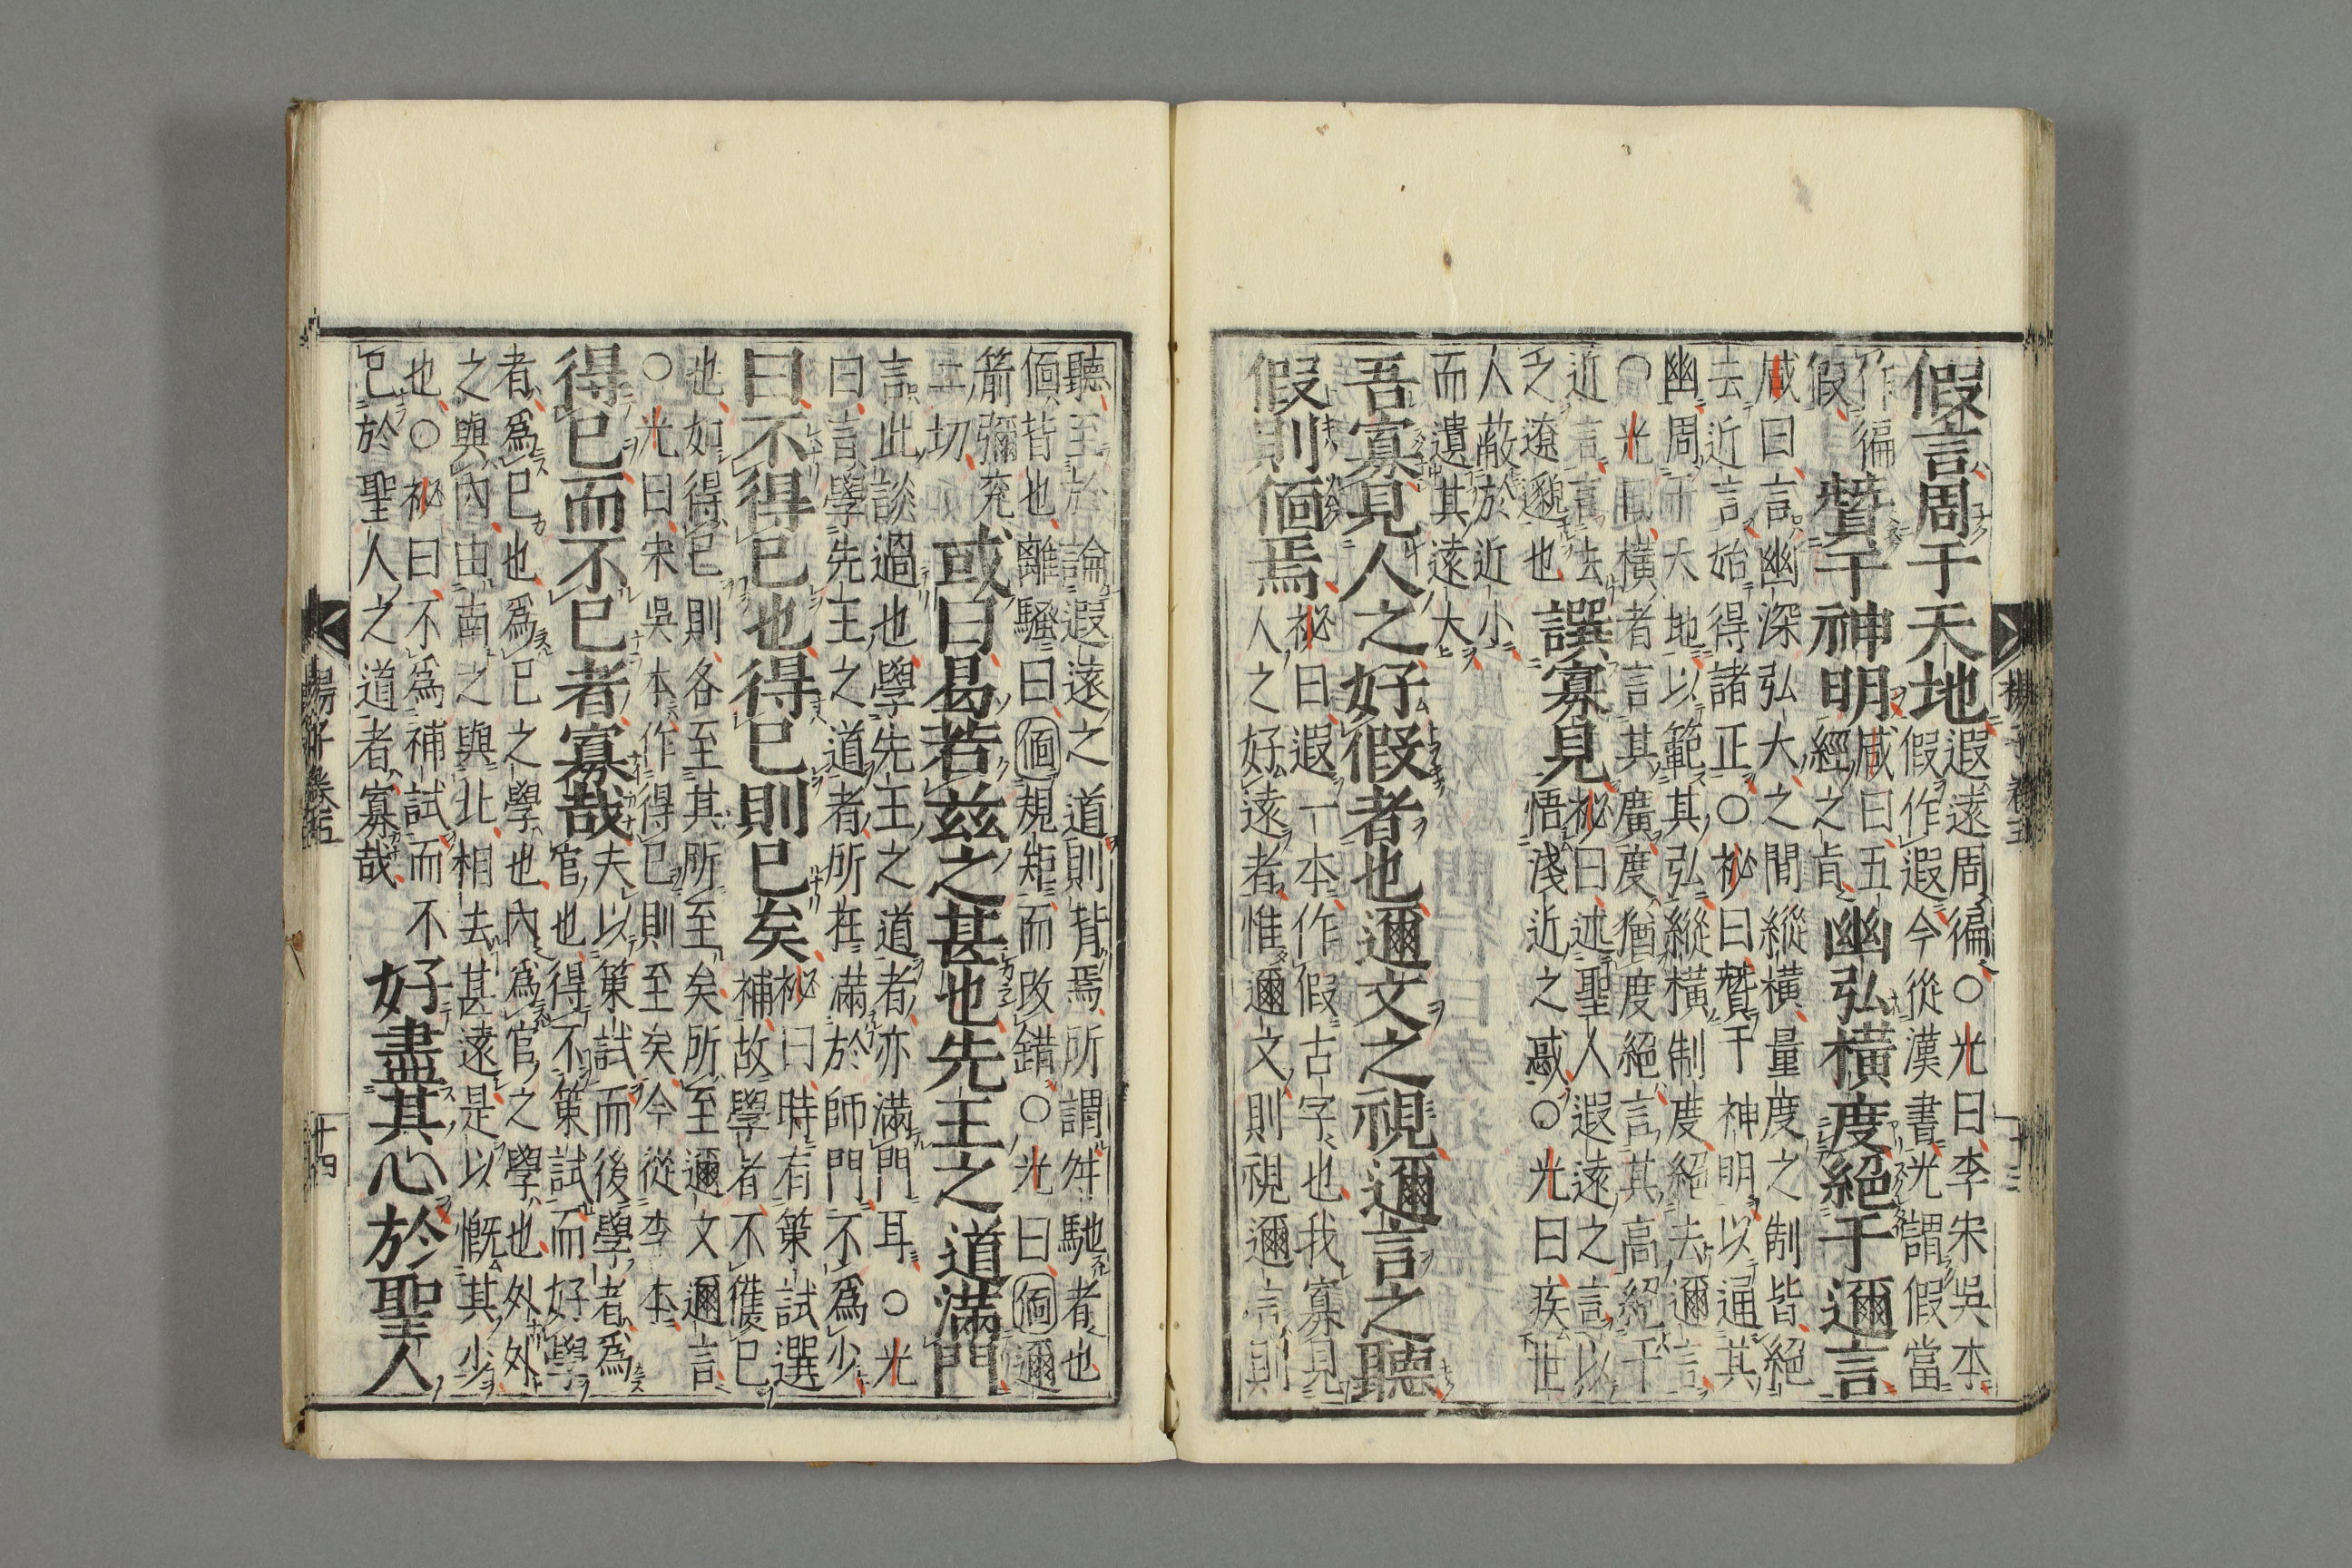 假言周于天地
遐遠周徧○光曰李宋吳本
假作遐今從漢書光謂假當
作徧
假
贊于神明
咸曰五
經之㫖
幽弘橫度絕于邇言
咸曰言幽深弘大之間縱橫量度之制皆絕
去近言始得諸正○祕曰贊于神明以通其
幽周于天地以範其弘縱橫制度絕去邇言
○光曰橫者言其廣度猶度絕言其高絕于
近言言去
之遼邈也
譔寡見
祕曰述聖人遐遠之言以
悟淺近之惑○光曰疾世
人蔽於近小
而遺其遠大
吾寡見人之好徦者也邇文之視邇言之聽
假則偭焉
祕曰遐一本作假古字也我寡見
人之好遠者惟邇文則視邇言則
楊子卷五 十三
聽至於論遐遠之道則背焉所謂舛馳者也
偭背也離騷曰偭規矩而改錯○光曰偭邇
箭彌兖
二切
或曰曷若兹之甚也先王之道滿門
言此談過也學先王之道者亦滿門耳○光
曰言學先王之道者所在滿於師門不爲少
曰不得已也得已則已矣
祕曰時有策試選
補故學者不獲已
也如得已則各至其所至矣所至邇文邇言
○光曰宋吳本作得已則至矣今從李本
得已而不已者寡哉
夫以策試而後學者爲
官也得不策試而好學
者爲已也爲已之學也內爲官之學也外外
之與內由南之與北相去甚遠是以慨其少
也○祕曰不爲補試而不
已於聖人之道者寡哉
好盡其心於聖人
楊子卷五 十四